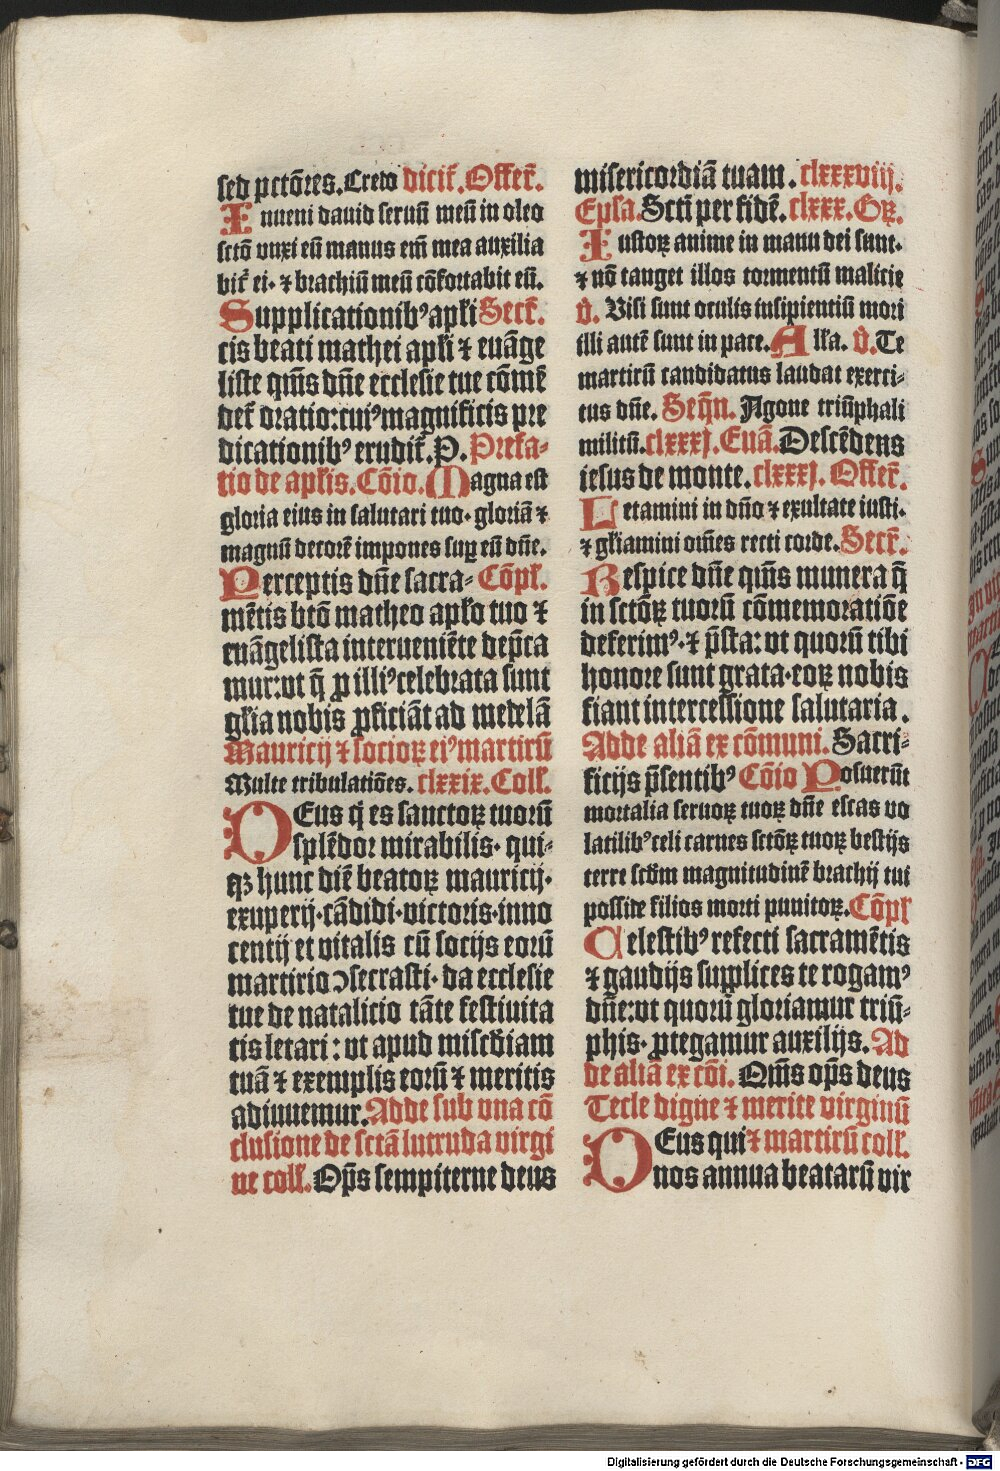 sed pctõres. Credo dicit̃. Offer̃.
Inueni dauid seruũ meũ in oleo
sctõ vnxi eũ manus em̃ mea auxilia
bit̃ ei· ⁊ brachiũ meũ cõfortabit eũ.
Supplicationibꝰ apl̃i Secr̃.
cis beati mathei apl̃i ⁊ euãge
liste qm̃s dñe ecclesie tue cõmẽ
det̃ oratio: cuiꝰ magnificis pre
dicationibꝰ erudit̃. P. Prefa-
tio de apl̃is. Cõio. Magna est
gloria eius in salutari tuo· gloriã ⁊
magnũ decorẽ impones suꝑ eũ dñe.
Perceptis dñe sacra- Cõpl̃.
mẽtis btõ matheo apl̃o tuo ⁊
euãgelista interueniẽte dep̃ca
mur: vt q̃ ꝓ illiꝰ celebrata sunt
gl̃ia nobis ꝓficiãt ad medelã
Mauricij ⁊ socioꝝ eiꝰ martirũ
Multe tribulatiões. clxxix. Coll̃.
DEus q̃ es sanctoꝝ tuorũ
splẽdor mirabilis· qui-
qꝫ hunc diẽ beatoꝝ mauricij·
exuperij· cãdidi· victoris· inno
centij et vitalis cũ socijs eorũ
martirio ꝯsecrasti· da ecclesie
tue de natalicio tãte festiuita
tis letari: vt apud misc̃diam
tuã ⁊ exemplis eorũ ⁊ meritis
adiuuemur. Adde sub vna cõ
clusione de sctã lutruda virgi
ne coll̃. Op̃s sempiterne deus
misericordiã tuam. clxxxviij.
Epl̃a. Sctĩ per fidẽ. clxxx. Gꝝ.
Iustoꝝ anime in manu dei sunt·
⁊ nõ tanget illos tormentũ malicie
v̉. Visi sunt oculis insipientiũ mori
illi autẽ sunt in pace. All̃a. v̉. Te
martirũ candidatus laudat exerci-
tus dñe. Seq̃n. Agone triũphali
militũ. clxxxj. Euã. Descẽdens
iesus de monte. clxxxj. Offer̃.
Letamini in dño ⁊ exultate iusti·
⁊ gl̃iamini om̃es recti corde. Secr̃.
Respice dñe qm̃s munera q̃
in sctõꝝ tuorũ cõmemoratiõe
deferimꝰ· ⁊ p̃sta: vt quorũ tibi
honore sunt grata· eoꝝ nobis
fiant intercessione salutaria.
Adde aliã ex cõmuni. Sacri-
ficijs p̃sentibꝰ Cõio Posuerũt
mortalia seruoꝝ tuoꝝ dñe escas vo
latilibꝰ celi carnes sctõꝝ tuoꝝ bestijs
terre scd̃m magnitudinẽ brachij tui
posside filios morti punitoꝝ. Cõpl̃
Celestibꝰ refecti sacramẽtis
⁊ gaudijs supplices te rogamꝰ
dñe: vt quorũ gloriamur triũ-
phis· ꝓtegamur auxilijs. Ad
de aliã ex cõi. Qm̃s op̃s deus
Tecle digne ⁊ merite virginũ
DEus qui ⁊ martirũ coll̃.
nos annua beatarũ vir
Digitalisierung gefördert durch die Deutsche Forschungsgemeinschaft - DFG